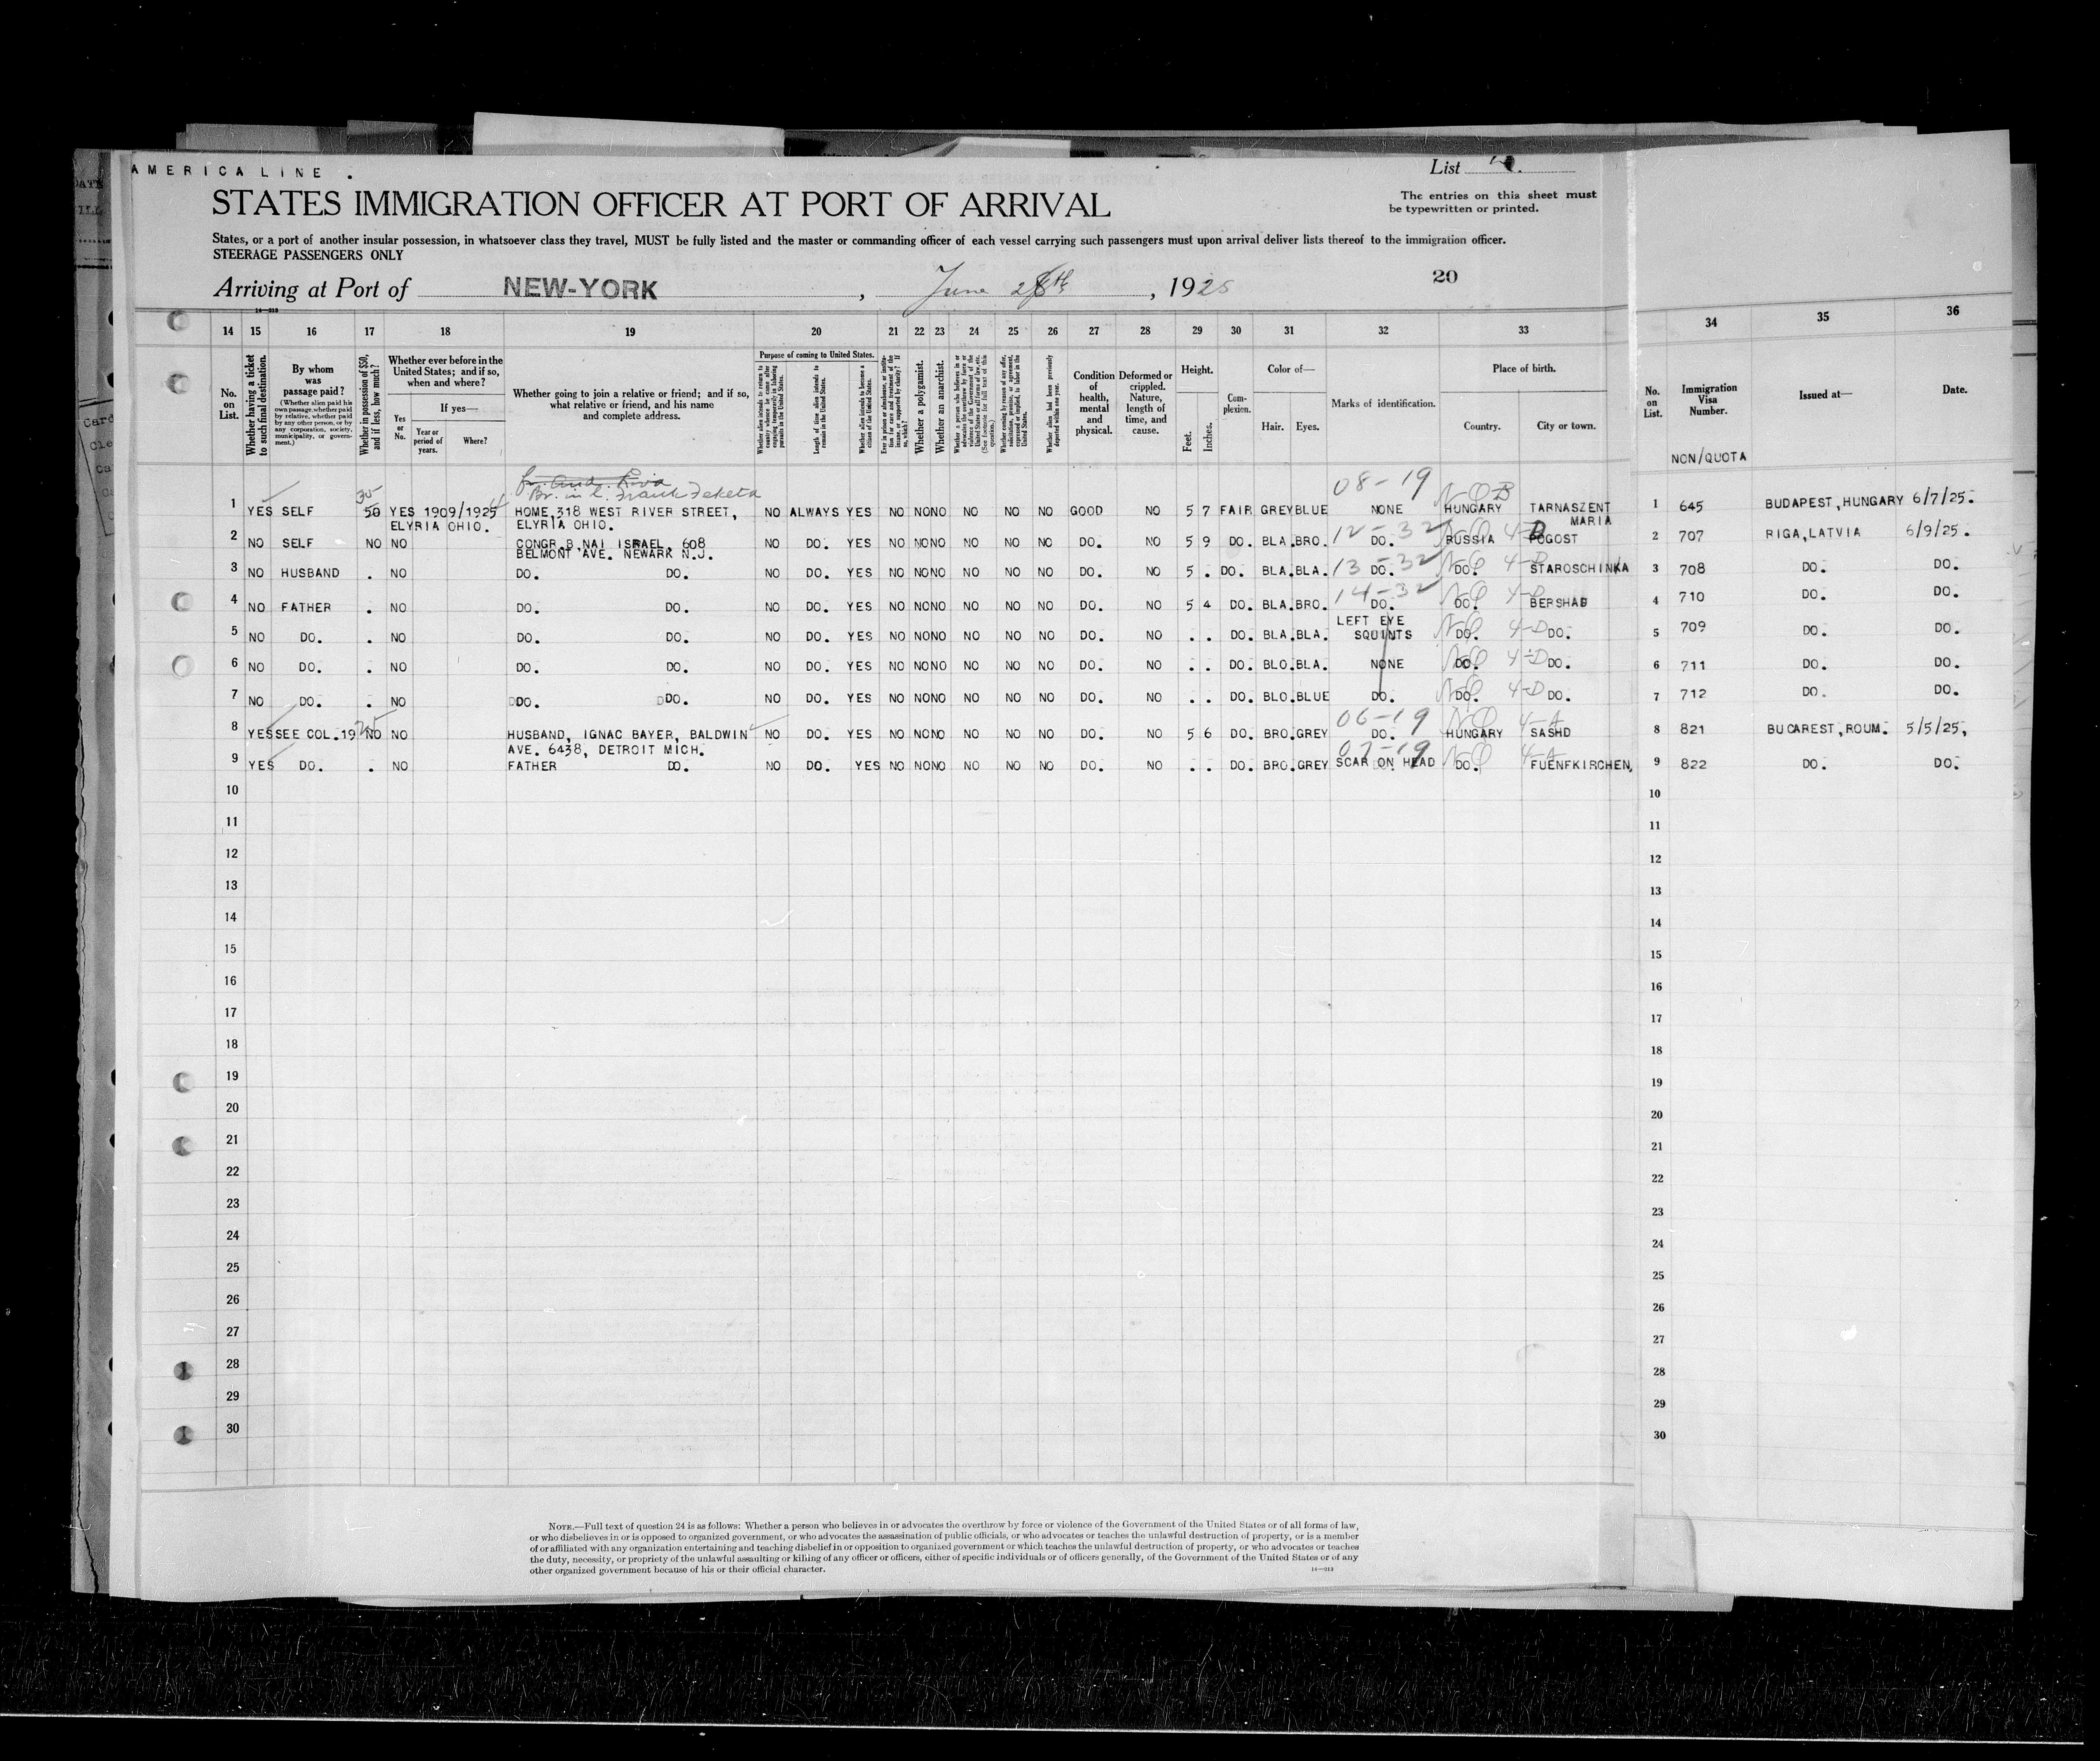 AMERICA LINE .
List
STATES IMMIGRATION OFFICER AT PORT OF ARRIVAL
The entries on this sheet must
be typewritten or printed.
States, or a port of another insular possession, in whatsoever class they travel, MUST be fully listed and the master or commanding officer of each vessel carrying such passengers must upon arrival deliver lists thereof to the immigration officer.
STEERAGE PASSENGERS ONLY
20
Arriving at Port of NEW-YORK , June 28th , 1925
14 15 16 17 18 19 20 21 22 23 24 25 26 27 28 29 30 31 32 33 34 35 36
No. on List.
Whether having a ticket to such final destination.
By whom was passage paid?
(Whether alien paid his own passage, whether paid by relative, whether paid by any other person, or by any corporation, society, municipality, or government.)
Whether in possession of $50, and if less, how much?
Whether ever before in the United States; and if so, when and where?
Yes or No.
If yes—
Year or period of years.
Where?
Whether going to join a relative or friend; and if so, what relative or friend, and his name and complete address.
Purpose of coming to United States.
Whether alien intends to return to country whence he came after engaging temporarily in laboring pursuits in the United States.
Length of time alien intends to remain in the United States.
Whether alien intends to become a citizen of the United States.
Whether a polygamist.
Whether an anarchist.
Whether alien had been previously deported within one year.
Condition of health, mental and physical.
Deformed or crippled. Nature, length of time, and cause.
Height.
Feet.
Inches.
Complexion.
Color of—
Hair.
Eyes.
Marks of identification.
Place of birth.
Country.
City or town.
No. on List.
Immigration Visa Number.
NON/QUOTA
Issued at—
Date.
Br. in l. Frank Feketa
08-19
1 YES SELF 50 YES 1909/1925 HOME,318 WEST RIVER STREET, NO ALWAYS YES NO NO NO NO NO NO GOOD NO 5 7 FAIR GREY BLUE NONE HUNGARY TARNASZENT 1 645 BUDAPEST,HUNGARY 6/7/25.
ELYRIA OHIO. ELYRIA OHIO. MARIA
12-32
2 NO SELF NO NO CONGR.B.NAI ISRAEL, 608 NO DO. YES NO NO NO NO NO NO DO. NO 5 9 DO. BLA.BRO. DO. RUSSIA POGOST 2 707 RIGA,LATVIA 6/9/25.
BELMONT AVE. NEWARK N.J.
13-32
3 NO HUSBAND . NO DO. DO. NO DO. YES NO NO NO NO NO NO DO. NO 5 . DO. BLA.BLA. DO. DO. 4-D STAROSCHINKA 3 708 DO. DO.
14-32
4 NO FATHER . NO DO. DO. NO DO. YES NO NO NO NO NO NO DO. NO 5 4 DO. BLA.BRO. DO. DO. 4-D BERSHAD 4 710 DO. DO.
LEFT EYE
5 NO DO. . NO DO. DO. NO DO. YES NO NO NO NO NO NO DO. NO . . DO. BLA.BLA. SQUINTS DO. 4-D DO. 5 709 DO. DO.
6 NO DO. . NO DO. DO. NO DO. YES NO NO NO NO NO NO DO. NO . . DO. BLO.BLA. NONE DO. 4-D DO. 6 711 DO. DO.
7 NO DO. . NO DO. DO. NO DO. YES NO NO NO NO NO NO DO. NO . . DO. BLO.BLUE DO. DO. 4-D DO. 7 712 DO. DO.
06-19 4-A
8 YES SEE COL.19 NO NO HUSBAND, IGNAC BAYER, BALDWIN NO DO. YES NO NO NO NO NO NO DO. NO 5 6 DO. BRO.GREY DO. HUNGARY SASHD 8 821 BUCAREST,ROUM. 5/5/25,
AVE. 6438, DETROIT MICH.
07-19 4-A
9 YES DO. . NO FATHER DO. NO DO. YES NO NO NO NO NO NO DO. NO . . DO. BRO.GREY SCAR ON HEAD DO. FUENFKIRCHEN, 9 822 DO. DO.
10 10
11 11
12 12
13 13
14 14
15 15
16 16
17 17
18 18
19 19
20 20
21 21
22 22
23 23
24 24
25 25
26 26
27 27
28 28
29 29
30 30
NOTE.—Full text of question 24 is as follows: Whether a person who believes in or advocates the overthrow by force or violence of the Government of the United States or of all forms of law,
or who disbelieves in or is opposed to organized government, or who advocates the assassination of public officials, or who advocates or teaches the unlawful destruction of property, or is a member
of or affiliated with any organization entertaining and teaching disbelief in or opposition to organized government or which teaches the unlawful destruction of property, or who advocates or teaches
the duty, necessity, or propriety of the unlawful assaulting or killing of any officer or officers, either of specific individuals or of officers generally, of the Government of the United States or of any
other organized government because of his or their official character.